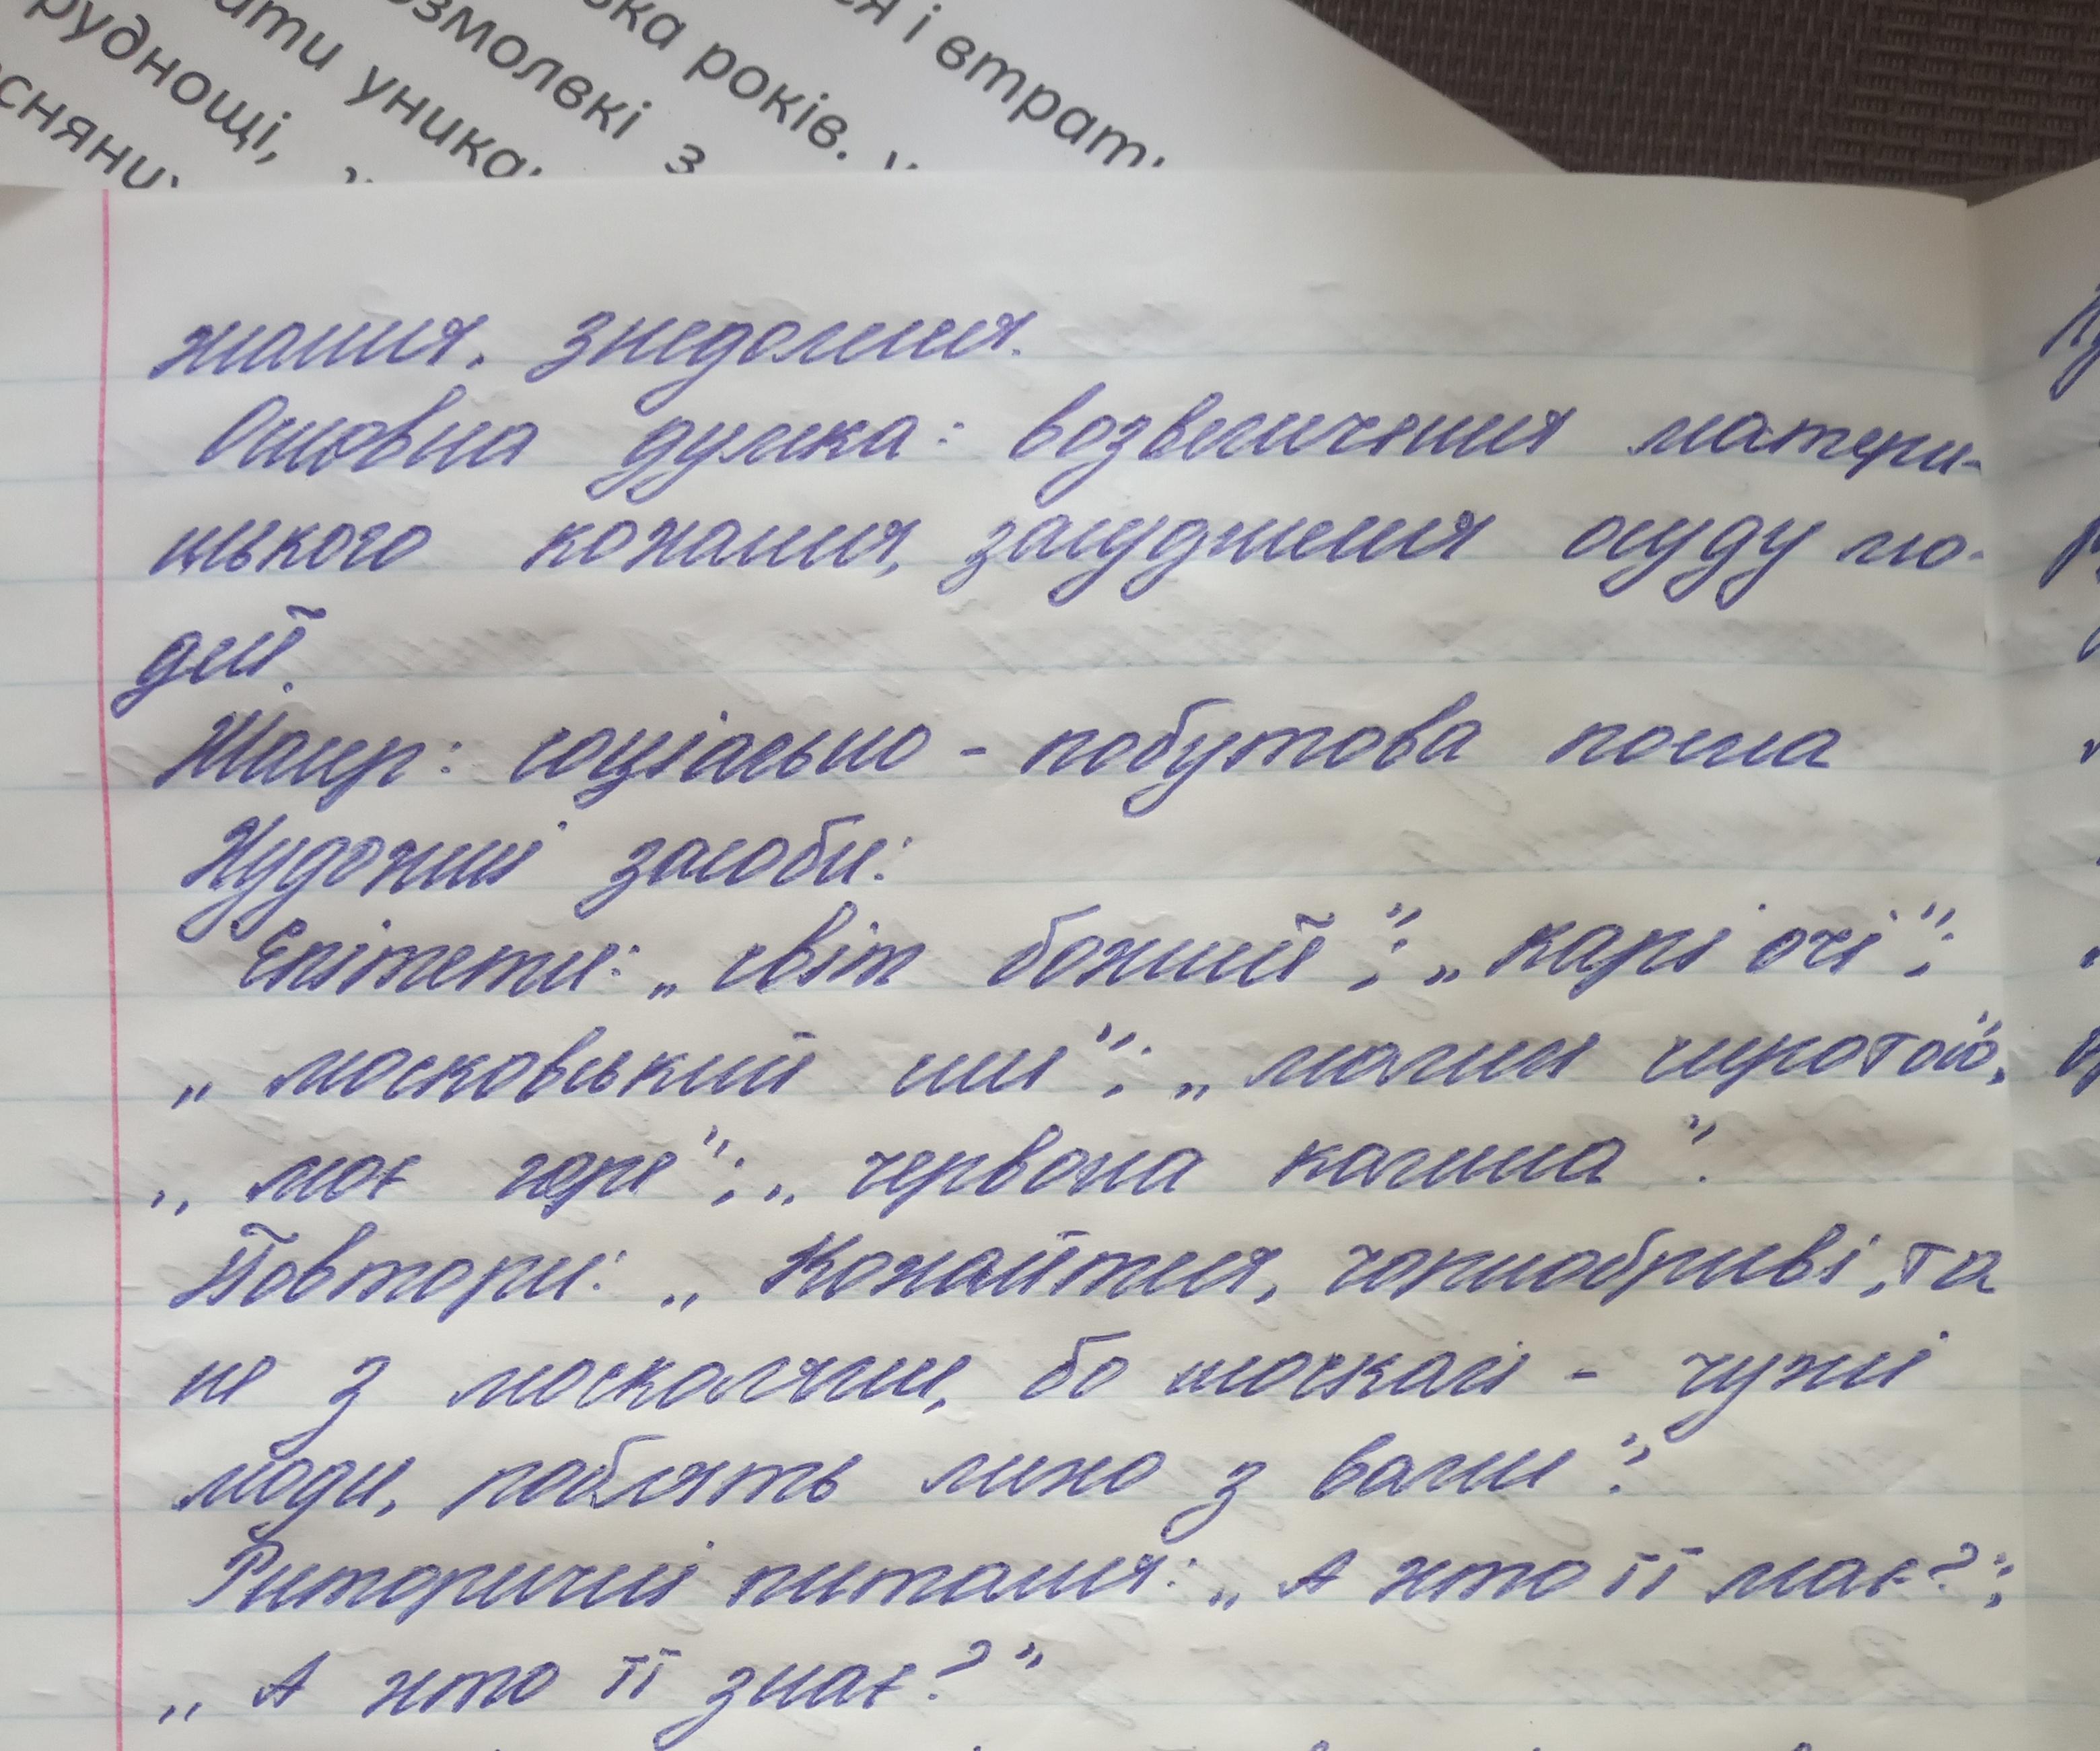 руднощі,
ати уника
озмолвкі з
ька років.
ся і втрат
жання, знедолення.
Основна думка: возвеличення матери-
нського кохання, засудження осуду лю-
дей.
Жанр: соціально - побутова поема
Художні засоби:
Епітети: „світ божий"; „карі очі";
„московський син"; „малим сиротою",
„моє горе"; „червона калина".
Повтори: „Кохайтеся, чорнобриві, та
не з москалями, бо москалі - чужі
люди, роблять лихо з вами".
Риторичні питання: „А хто її має?";
„А хто її знає?"